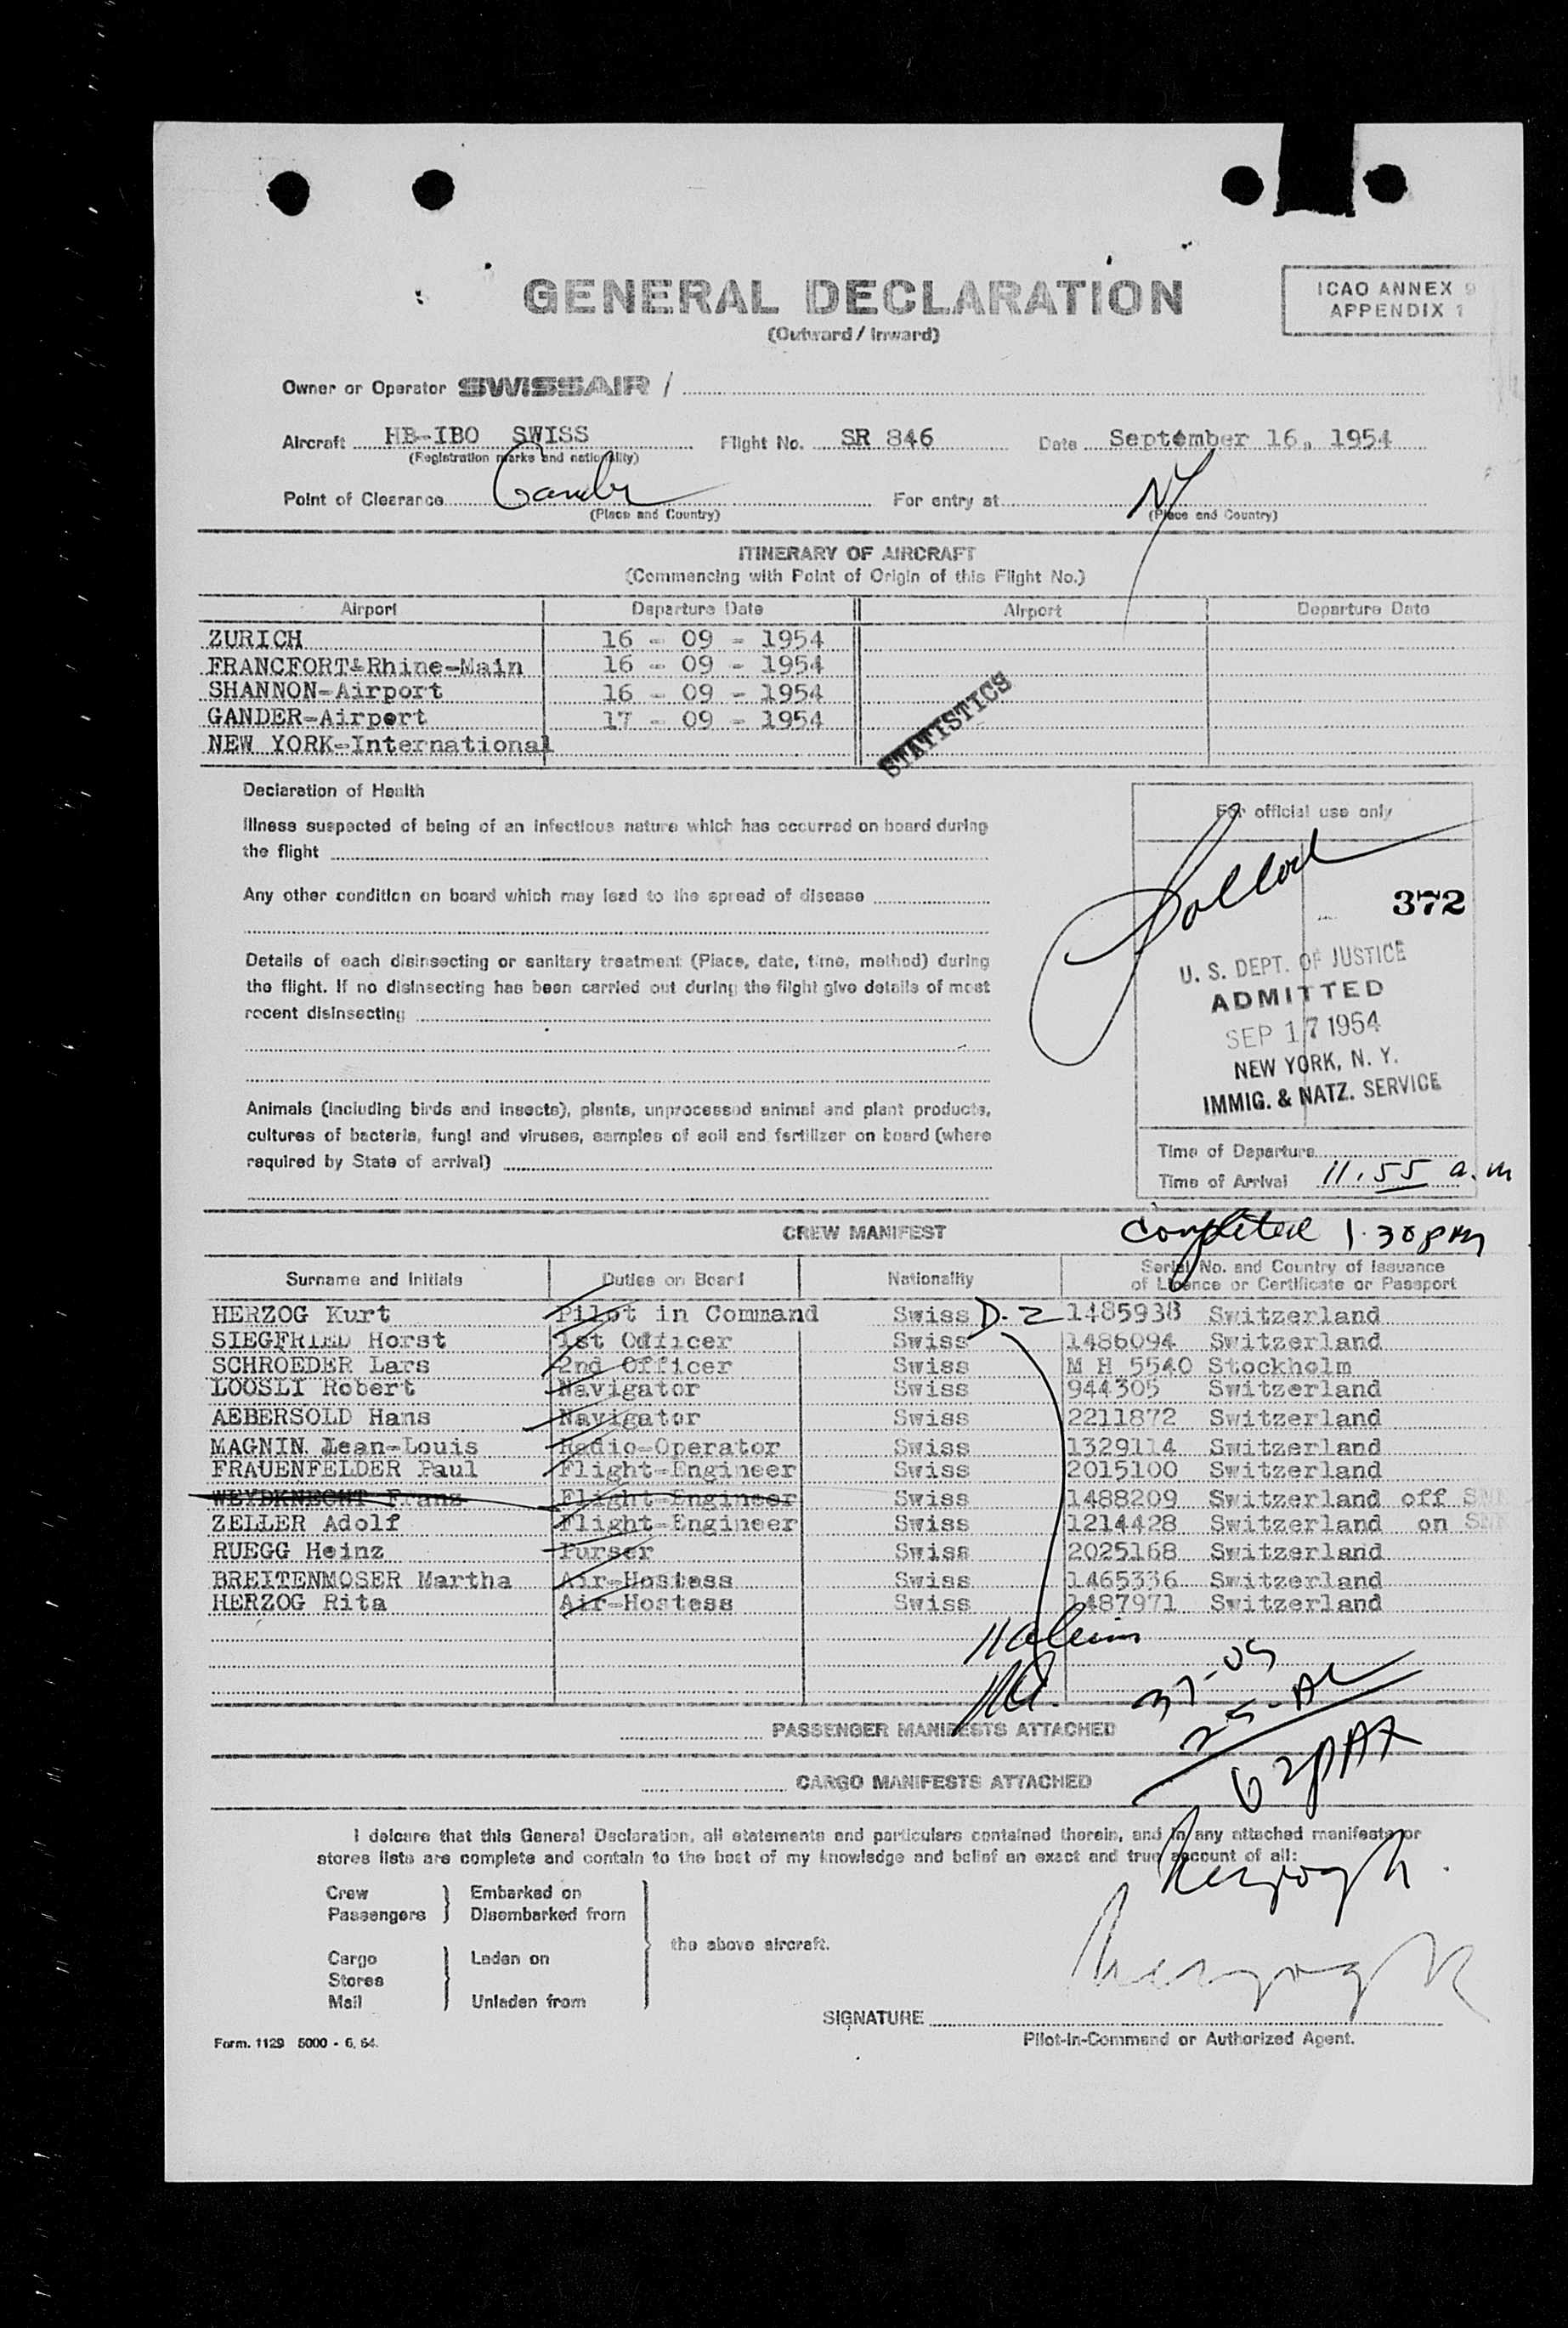 GENERAL DECLARATION
(Outward / Inward)
ICAO ANNEX 9
APPENDIX 1
Owner or Operator SWISSAIR /
Aircraft HB-IBO SWISS Flight No. SR 846 Date September 16, 1954
(Registration marks and nationality)
Point of Clearance Gander For entry at NY
(Place and Country) (Place and Country)
ITINERARY OF AIRCRAFT
(Commencing with Point of Origin of this Flight No.)
Airport Departure Date Airport Departure Date
ZURICH 16 - 09 - 1954
FRANCFORT-Rhine-Main 16 - 09 - 1954
SHANNON-Airport 16 - 09 - 1954
GANDER-Airport 17 - 09 - 1954
NEW YORK-International
STATISTICS
Declaration of Health
Illness suspected of being of an infectious nature which has occurred on board during
the flight
Any other condition on board which may lead to the spread of disease
Details of each disinsecting or sanitary treatment (Place, date, time, method) during
the flight. If no disinsecting has been carried out during the flight give details of most
recent disinsecting
Animals (including birds and insects), plants, unprocessed animal and plant products,
cultures of bacteria, fungi and viruses, samples of soil and fertilizer on board (where
required by State of arrival)
For official use only
372
U. S. DEPT. OF JUSTICE
ADMITTED
SEP 17 1954
NEW YORK, N. Y.
IMMIG. & NATZ. SERVICE
Time of Departure
Time of Arrival 11.55 a.m
CREW MANIFEST
Completed 1.30 pm
Surname and Initials Duties on Board Nationality Serial No. and Country of Issuance
of Licence or Certificate or Passport
HERZOG Kurt Pilot in Command Swiss D-2 1485938 Switzerland
SIEGFRIED Horst 1st Officer Swiss 1486094 Switzerland
SCHROEDER Lars 2nd Officer Swiss M H 5540 Stockholm
LOOSLI Robert Navigator Swiss 944305 Switzerland
AEBERSOLD Hans Navigator Swiss 2211872 Switzerland
MAGNIN Jean-Louis Radio-Operator Swiss 1329114 Switzerland
FRAUENFELDER Paul Flight-Engineer Swiss 2015100 Switzerland
WEYDKNECHT Franz Flight-Engineer Swiss 1488209 Switzerland off SNN
ZELLER Adolf Flight-Engineer Swiss 1214428 Switzerland on SNN
RUEGG Heinz Purser Swiss 2025168 Switzerland
BREITENMOSER Martha Air-Hostess Swiss 1465336 Switzerland
HERZOG Rita Air-Hostess Swiss 1487971 Switzerland
PASSENGER MANIFESTS ATTACHED
CARGO MANIFESTS ATTACHED
37-US
25-AL
62 PAX
I delcare that this General Declaration, all statements and particulars contained therein, and in any attached manifests or
stores lists are complete and contain to the best of my knowledge and belief an exact and true account of all:
Crew Embarked on
Passengers Disembarked from
the above aircraft.
Cargo Laden on
Stores
Mail Unladen from
SIGNATURE
Pilot-in-Command or Authorized Agent.
Form. 1129 5000 - 6. 54.